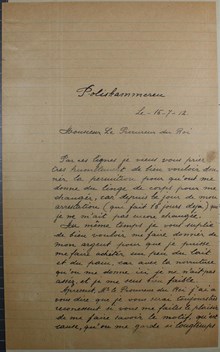 Polisкammeren
le - 15-7-12.
Monsieur Le Procureur du Roi
Par ces lignes je viens vous prier
très humblement de bien vouloir don-
ner la permition pour qu'ont me
donne du linge de corps pour me
changer, car depuis le jour de mon
arrestation (qui fait 16 jours déjà) que
je ne m'ait pas encore changée.
La même temps je vous suplie
de bien vouloir me faire donner de
mon argent pour que je puisse
me faire acheter un peu du lait
et du pain, car avec la nourriture
qu'on me donne ici je ne n'ait pas
assez, et je me sens bien faible.
Maintenant, Mr le Procureur du Roi, j'ai a
vous dire que je vous serai toujours très
reconnaissant si vous me faites le plaisir
de me faire savoir le motif, qui est
cause, qu'on me garde si longtemps